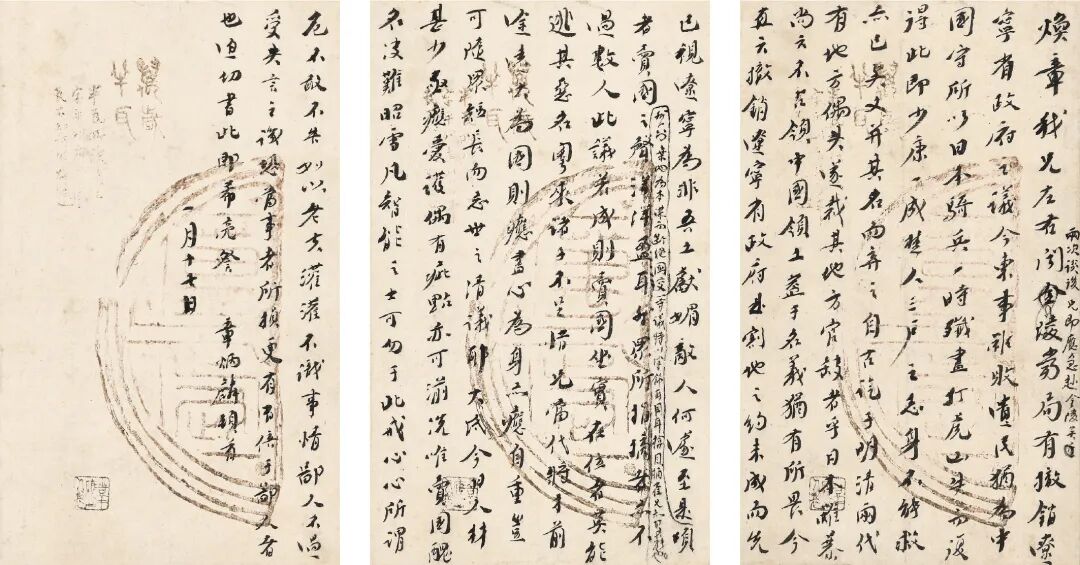 煥章我兄左右閱金陵當局有撤銷遼
寧省政府之議今東事雖敗遺民猶為中
國守所以日本騎兵一時殲盡打虎口失而復
得此即少康一成楚人三戶之志身不能救
亦已矣又并其名而弃之自古訖于明清兩代
有地方偶失遂裁其地方官缺者乎日本雖暴
尚云不占領中國領土蓋于名義猶有所畏今
直云撤銷遼寧省政府是割地之約未成而先
已視遼寧為非吾土獻媚敵人何遽至是頃
者賣國之聲洋洋盈耳外界所指摘者亦不
過數人此議若成則賣國坐實在位者莫能
逃其惡名諸子不足惜兄當代將才前
途遠矣為國則應盡心為身亦應自重豈
可隨眾短長而忘世之清議耶大氐今人材
甚少亟應愛護偶有疵點亦可湔洗唯賣國醜
名難昭雪凡智能之士可勿于此戒心心所謂
危不敢不告如以老夫灌灌不識事情鄙人不過
受失言之譏恐當事者所損更有百倍于鄙人者
也迫切書此即希亮詧 章炳麟頓首
一月十七日